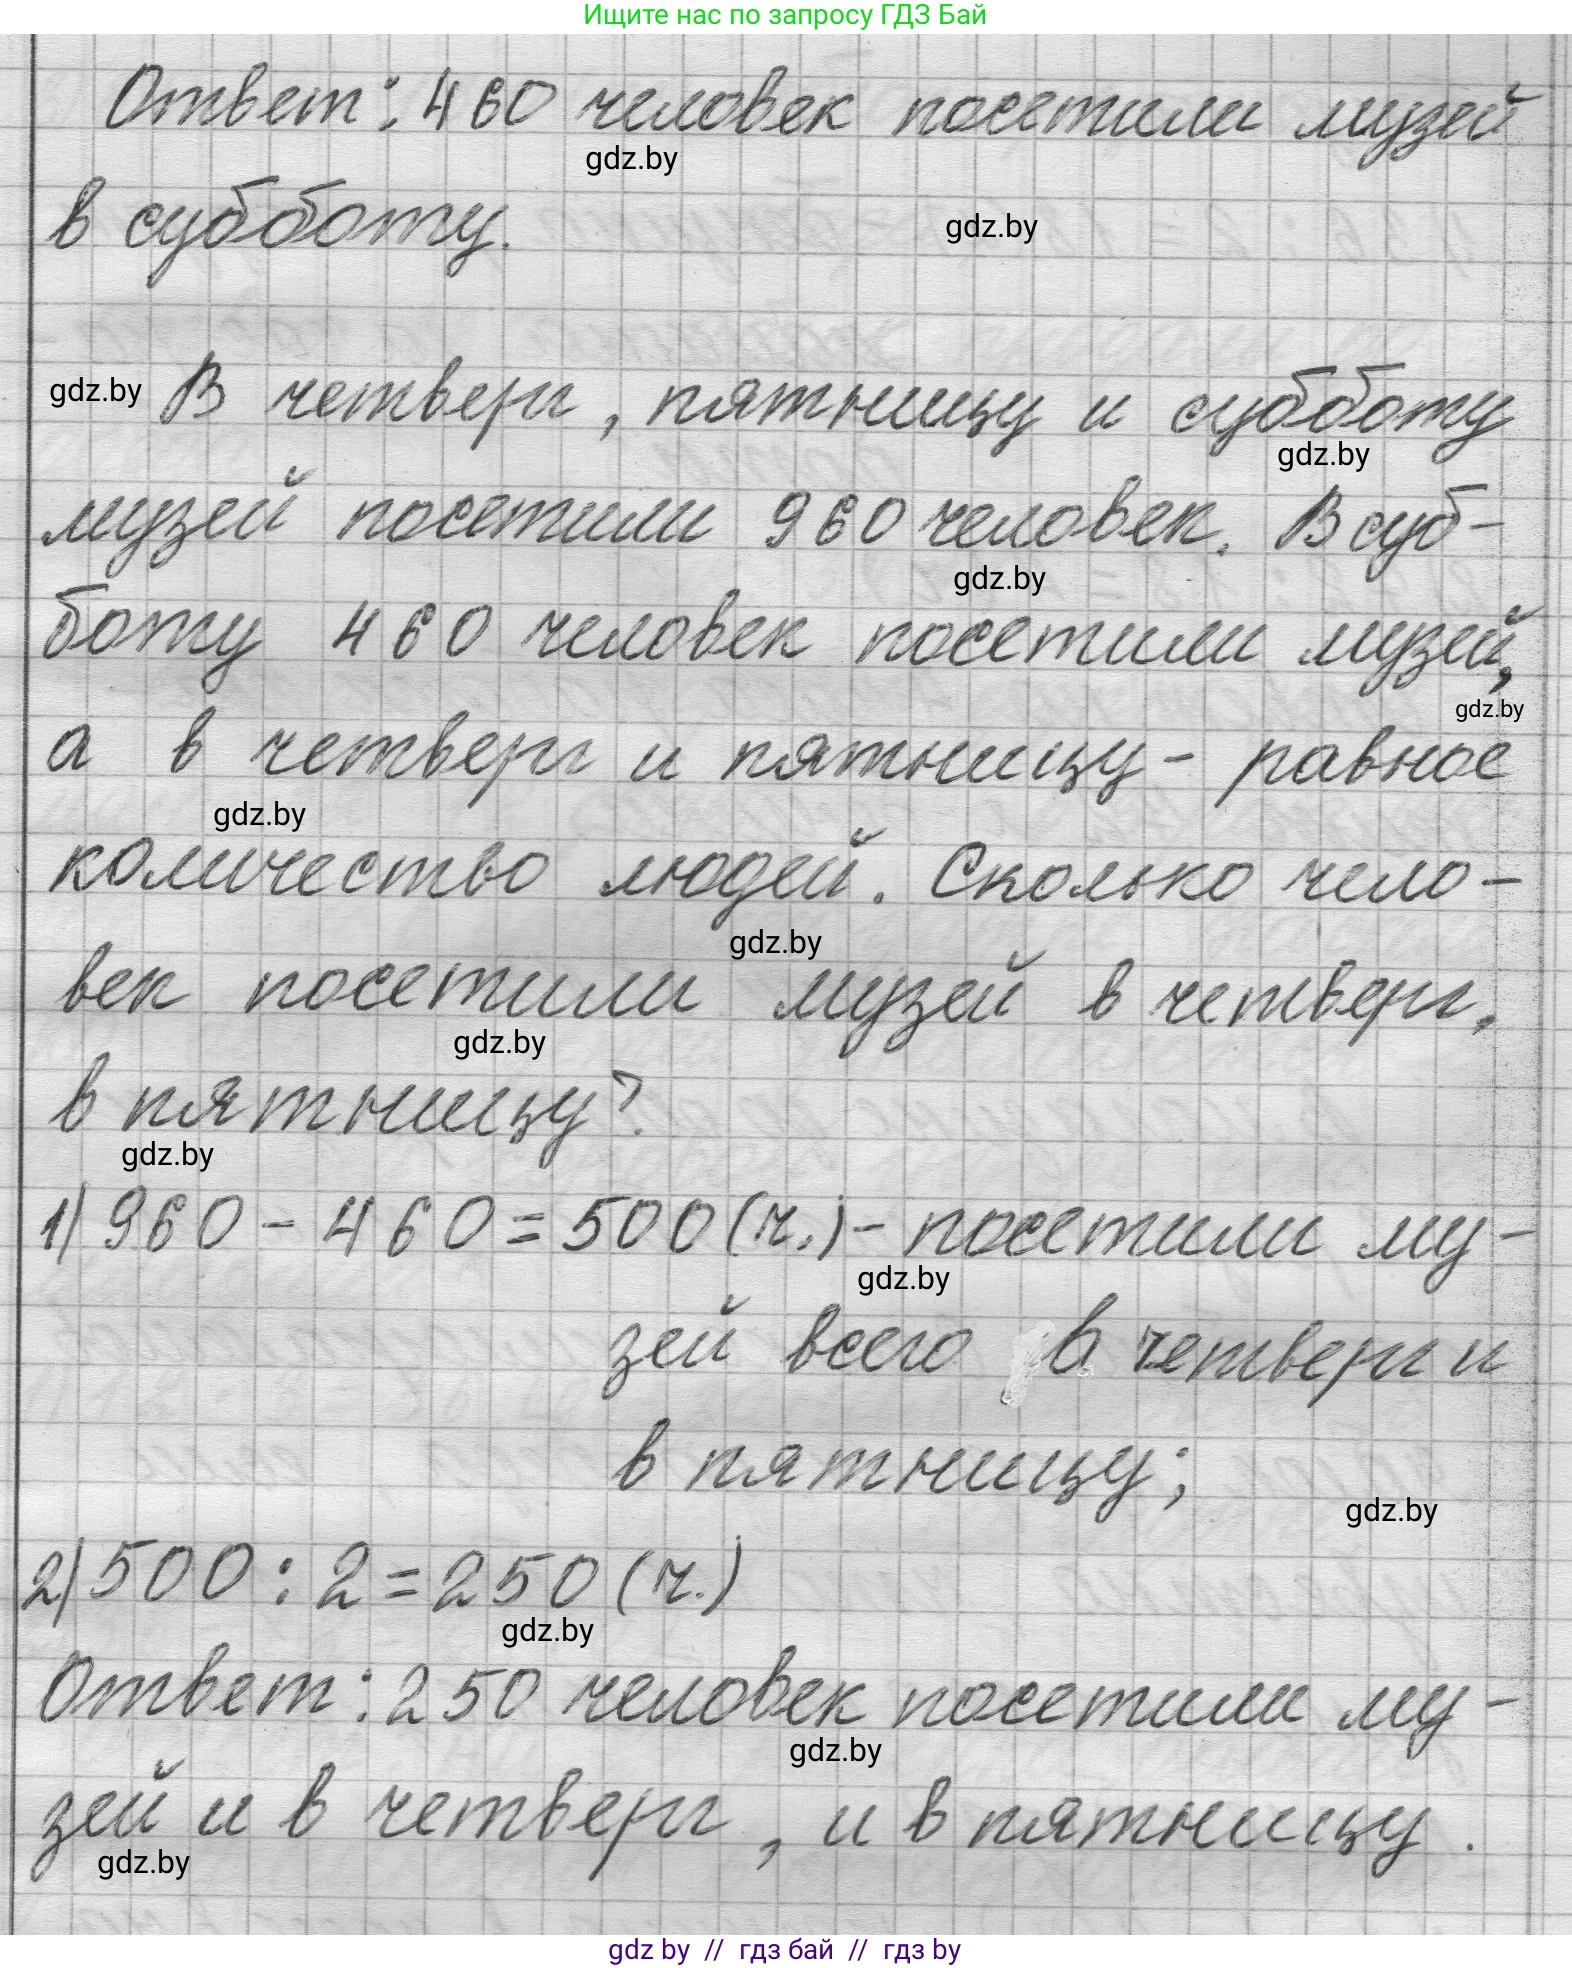 Ищите нас по запросу ГДЗ Бай
Ответ: 460 человек посетили музей
gdz.by
в субботу.
gdz.by
gdz.by
В четверг, пятницу и субботу
gdz.by
музей посетили 960 человек. В суб-
gdz.by
боту 460 человек посетили музей,
gdz.by
а в четверг и пятницу - равное
gdz.by
количество людей. Сколько чело-
gdz.by
век посетили музей в четверг,
gdz.by
в пятницу?
gdz.by
1) 960 - 460 = 500 (ч.) - посетили му-
gdz.by
зей всего в четверг и
в пятницу;
gdz.by
2) 500 : 2 = 250 (ч.)
gdz.by
Ответ: 250 человек посетили му-
gdz.by
зей и в четверг, и в пятницу.
gdz.by
gdz by // гдз бай // гдз by